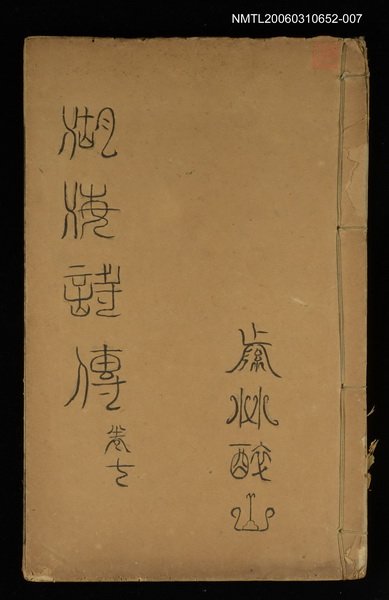 NMTL20060310652-007
山
湖海詩傳
卷七